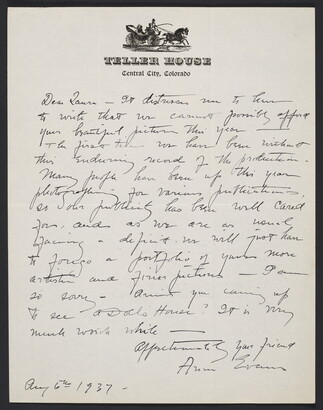 TELLER HOUSE
Central City, Colorado
Dear Laura — It distresses me to have
to write that we cannot possibly afford
your beautiful pictures this year —
The first time we have been without
this enduring record of the production.
Many people have been up this year
photographing for various publications,
so our publicity has been well cared
for, and as we are as usual
facing a deficit we will just have
to forego a portfolio of yours more
artistic and finer pictures — I am
so sorry — Aren't you coming up
to see "A Doll's House"? It is very
much worth while —
Affectionately your friend
Anne Evans
Aug 6th 1937 —